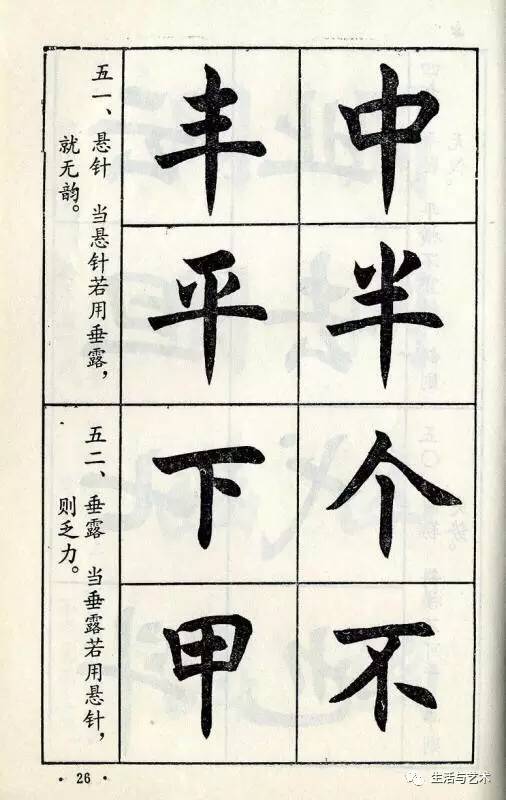 中
半
丰
平
五一、悬针　当悬针若用垂露，
就无韵。
个
不
下
甲
五二、垂露　当垂露若用悬针，
则乏力。
·26·
生活与艺术